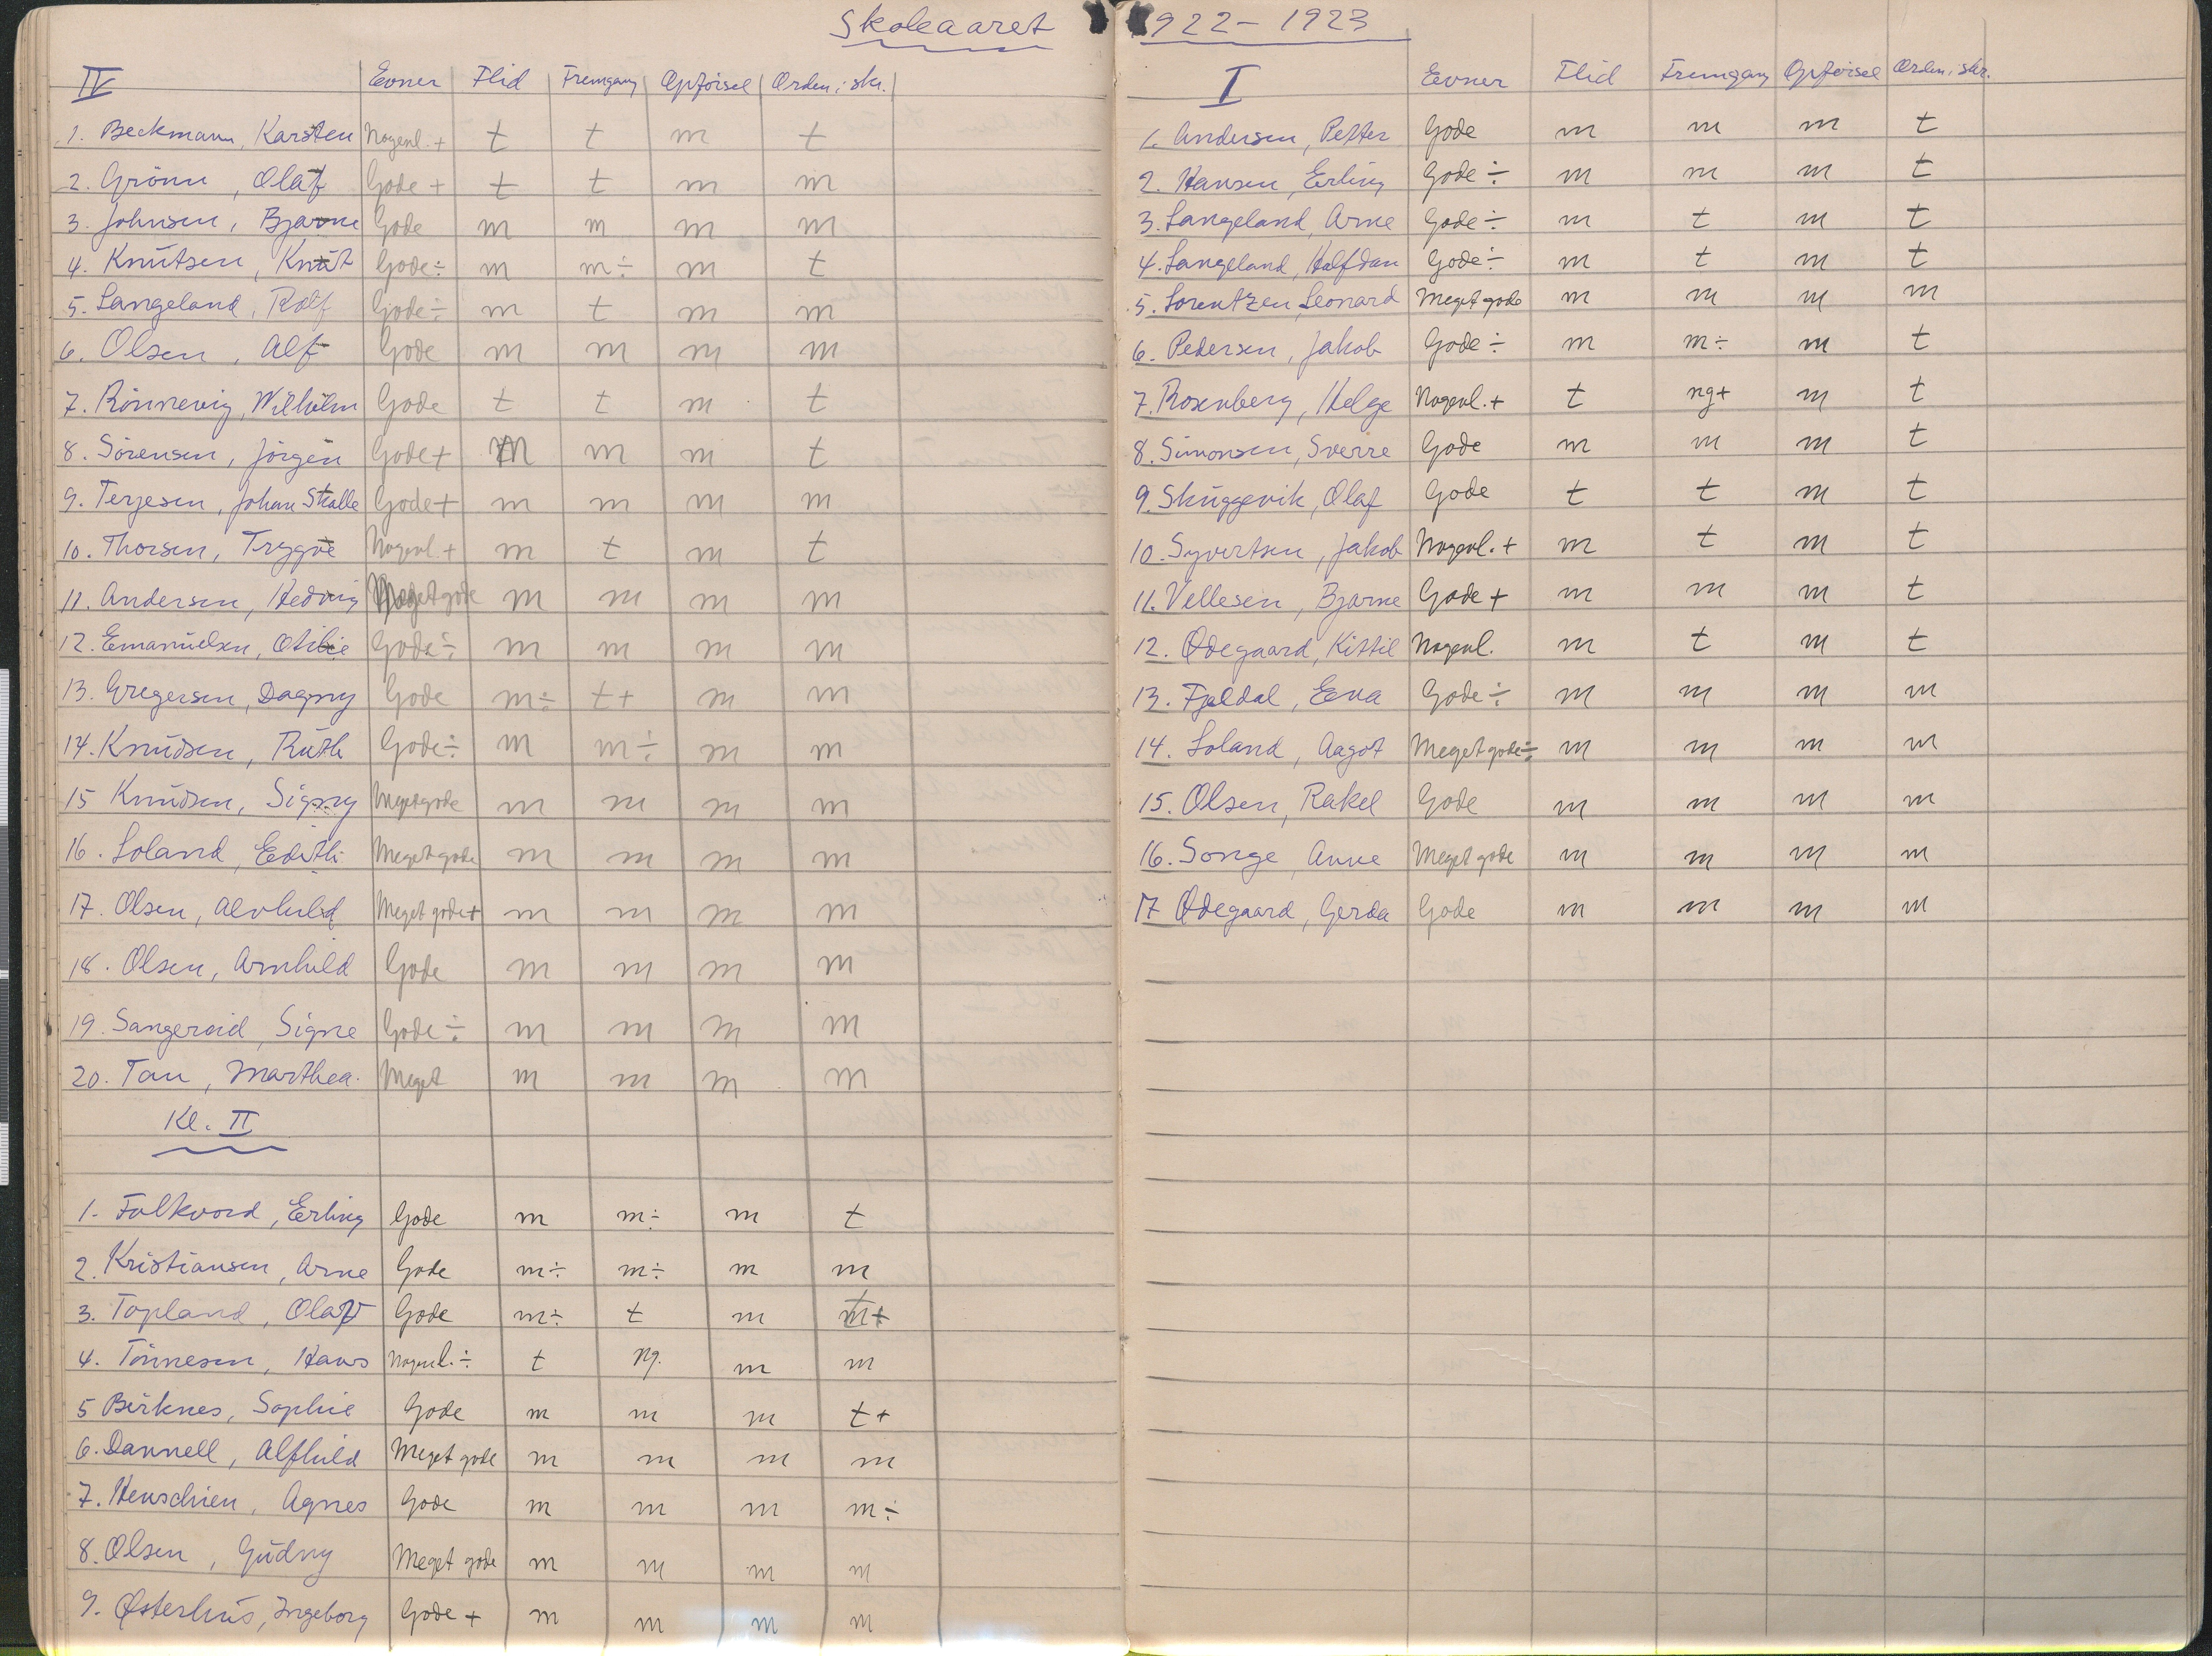 Skoleaaret 1922 – 1923
IV Evner Flid Fremgang Opførsel Orden i skr.
1. Beckmann, Karsten Nogenl. + t t m t
2. Grönn, Olaf Gode + t t m m
3. Johnsen, Bjarne Gode m m m m
4. Knutsen, Knut Gode ÷ m m ÷ m t
5. Langeland, Rolf Gode ÷ m t m m
6. Olsen, Alf Gode m m m m
7. Rönnevig, Wilhelm Gode t t m t
8. Sörensen, Jörgen Gode + m m m t
9. Terjesen, Johan Skalle Gode + m m m m
10. Thorsen, Trygve Nogenl. + m t m t
11. Andersen, Hedvig Meget gode m m m m
12. Emanuelsen, Otilie Gode ÷ m m m m
13. Gregersen, Dagny Gode m ÷ t + m m
14. Knudsen, Ruth Gode ÷ m m ÷ m m
15 Knudsen, Signy Meget gode m m m m
16. Loland, Edith Meget gode m m m m
17. Olsen, Alvhild Meget gode + m m m m
18. Olsen, Arnhild Gode m m m m
19. Sangereid, Signe Gode ÷ m m m m
20. Tau, Marthea. Meget m m m m
Kl. II
1. Folkvord, Erling Gode m m ÷ m t
2. Kristiansen, Arne Gode m ÷ m ÷ m m
3. Topland, Olaf Gode m ÷ t m t +
4. Tönnesen, Hans Nogenl. ÷ t ng. m m
5 Birknes, Sophie Gode m m m t +
6. Dannell, Alfhild Meget gode m m m m
7. Henschien, Agnes Gode m m m m ÷
8. Olsen, Gudny Meget gode m m m m
9. Østerhus, Ingeborg Gode + m m m m
I Evner Flid Fremgang Opførsel Orden i skr.
1. Andersen, Petter Gode m m m t
2. Hansen, Erling Gode ÷ m m m t
3. Langeland, Arne Gode ÷ m t m t
4. Langeland, Halfdan Gode ÷ m t m t
5. Lorentzen, Leonard Meget gode m m m m
6. Pedersen, Jakob Gode ÷ m m ÷ m t
7. Rosenberg, Helge Nogenl. + t ng + m t
8. Simonsen, Sverre Gode m m m t
9. Skuggevik, Olaf Gode t t m t
10. Syvertsen, Jakob Nogenl. + m t m t
11. Vellesen, Bjarne Gode + m m m t
12. Ødegaard, Kittil Nogenl. m t m t
13. Fjeldal, Eva Gode ÷ m m m m
14. Loland, Aagot Meget gode ÷ m m m m
15. Olsen, Rakel Gode m m m m
16. Songe, Anne Meget gode m m m m
17 Ødegaard, Gerda Gode m m m m